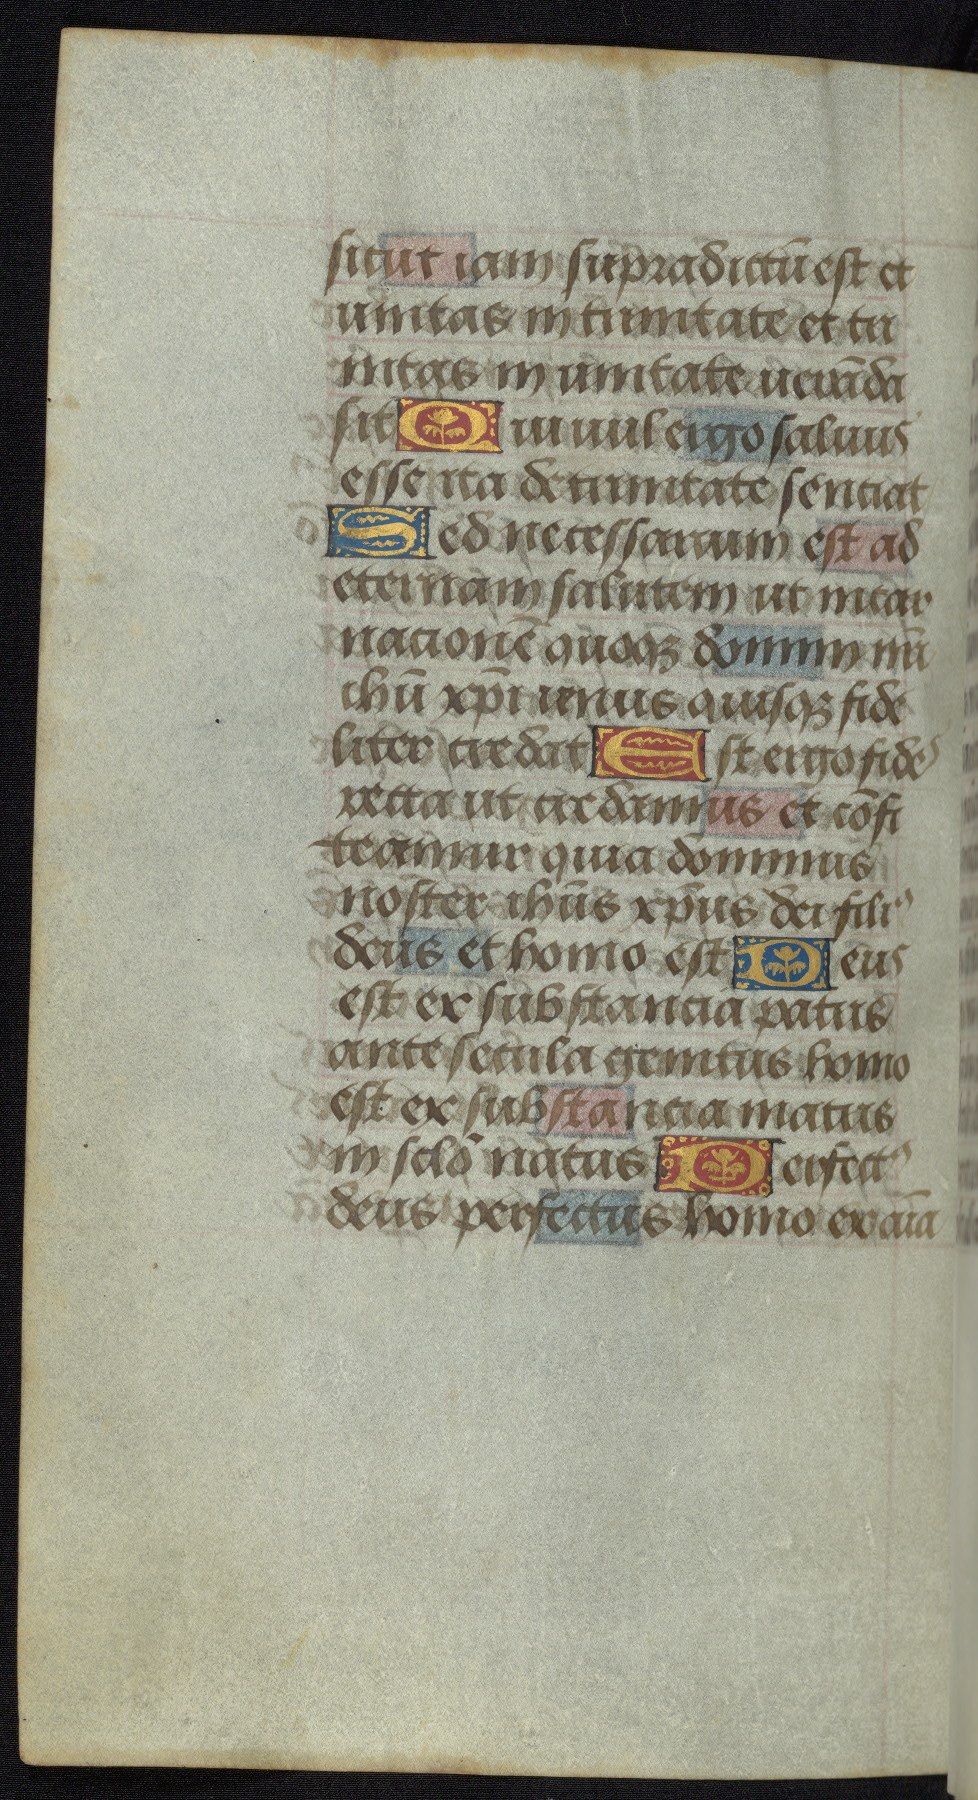 sicut iam supradictū est et
unitas in trinitate et tri
nitas in unitate uenerāda
sit Qui uult ergo saluus
esse ita de trinitate senciat
Sed necessarium est ad
eternam salutem ut incar
nacionē quoqꝫ domini nr̄i
ihū xp̄i unus quisqꝫ fide
liter credat Est ergo fideˀ
recta ut credamus et cōfi
teamur quia dominus
noster ihūs xp̄us dei filiꝰ
deus et homo est Deus
est ex substancia patris
ante secula genitus homo
est ex substancia matris
in sclo᷒ natus Perfectꝰ
deus perfectus homo ex aīa